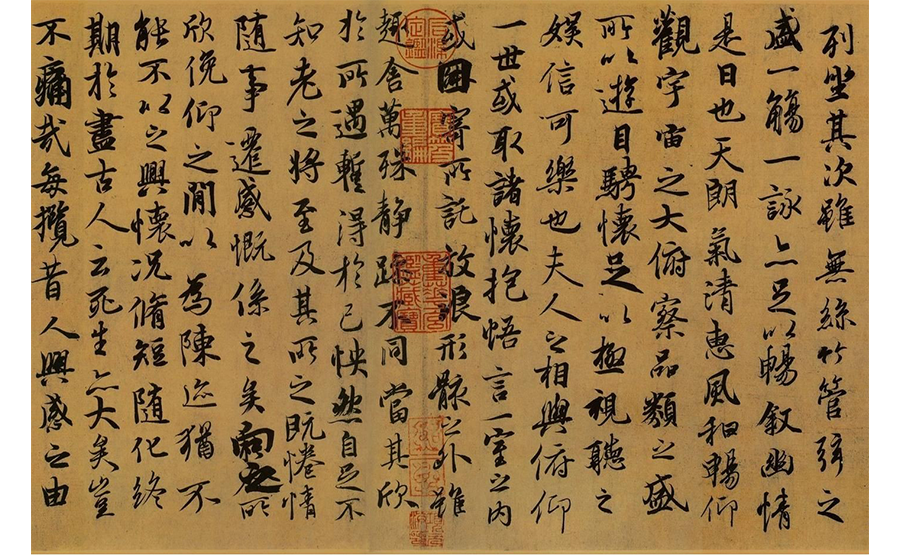 列坐其次雖無絲竹管弦之
盛一觴一詠亦足以暢敘幽情
是日也天朗氣清惠風和暢仰
觀宇宙之大俯察品類之盛
所以遊目騁懷足以極視聽之
娛信可樂也夫人之相與俯仰
一世或取諸懷抱悟言一室之內
或因寄所託放浪形骸之外雖
趣舍萬殊靜躁不同當其欣
於所遇暫得於己怏然自足不
知老之將至及其所之既惓情
隨事遷感慨係之矣向之所
欣俛仰之閒以為陳迹猶不
能不以之興懷況脩短隨化終
期於盡古人云死生亦大矣豈
不痛哉每攬昔人興感之由